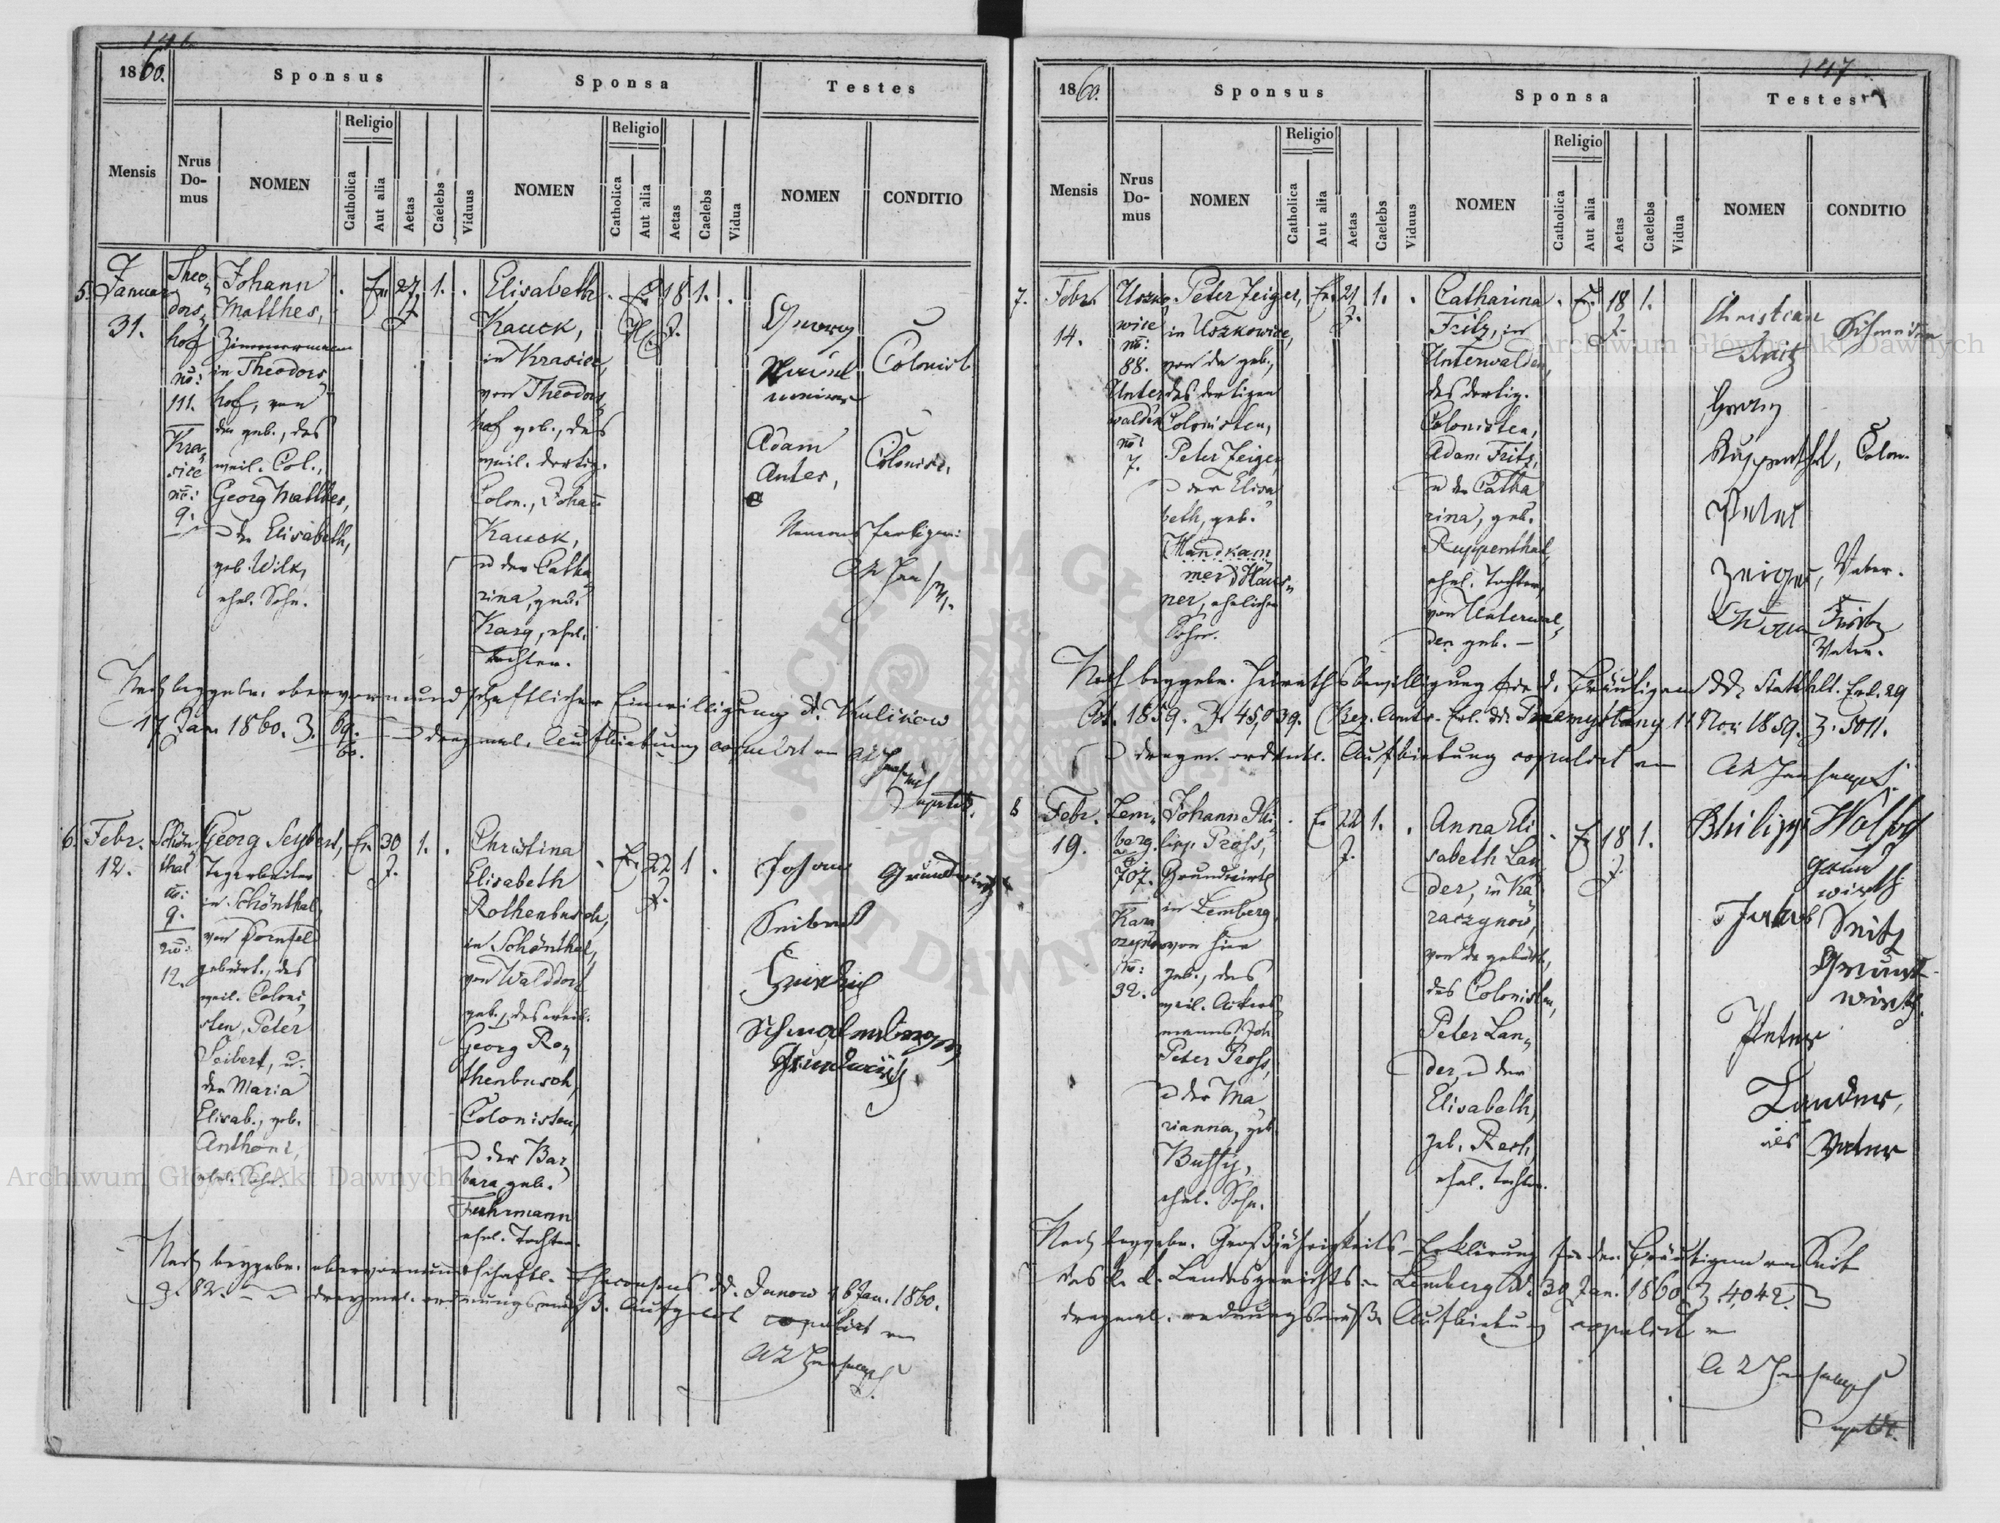 146
1860.
Sponsus
Sponsa
Testes
Mensis
Nrus
Do-
mus
NOMEN
Religio
Catholica
Aut alia
Aetas
Caelebs
Viduus
NOMEN
Religio
Catholica
Aut alia
Aetas
Caelebs
Vidua
NOMEN
CONDITIO
5.
Januar
31.
Theo-
dors-
hof
no:
111.
Kra-
sice
no:
9.
Johann
Matthes,
Zimmermann
in Theodors-
hof, von
da geb., des
weil. Col.,
Georg Matthes,
u der Elisabeth,
geb. Wilk,
ehel. Sohn.
Ev.
27
J.
1.
Elisabeth
Kauck,
in Krasice,
von Theodors-
hof geb., des
weil. dortig.
Colon., Johann
Kauck,
u der Catha-
rina, geb.
Karg, ehel.
Tochter.
Ev.
H.C.
18
J.
1.
Georg
Colonist
Adam
Antes,
Colonist,
Namensfertiger:
Nach beygebr. obervormundschaftlicher Einwilligung dd. Kulikow
17 Jan. 1860. Z. 69/60. u dreymal. Aufbietung copulirt von
6.
Febr.
12.
Schön-
thal
no:
9.
no:
12.
Georg Seybert,
Tagarbeiter
in Schönthal,
von Dornfeld
gebürt., des
weil. Coloni-
sten, Peter
Seibert, u.
der Maria
Elisab., geb.
Anthoni,
ehel. Sohn.
Ev.
30
J.
1.
Christina
Elisabeth
Rothenbusch,
in Schönthal,
von Walddorf
geb., des weil.
Georg Ro-
thenbusch,
Colonisten,
u der Bar-
bara, geb.
Fuhrmann
ehel. Tochter.
Ev.
22
J.
1
Johann
Seibert
Grundwirth
Heinrich
Schmalenberg
Grundwirth
Nach beygebr. obervormundschaftl. Eheconsens dd. Janow 16 Jan. 1860.
Z. 82. u dreymal. ordnungsmäß. Aufgebot copulirt von
147
1860.
Sponsus
Sponsa
Testes
Mensis
Nrus
Do-
mus
NOMEN
Religio
Catholica
Aut alia
Aetas
Caelebs
Viduus
NOMEN
Religio
Catholica
Aut alia
Aetas
Caelebs
Vidua
NOMEN
CONDITIO
7.
Febr.
14.
Uszko-
wice
no:
88.
Unter-
walden
no:
7.
Peter Zeiger,
in Uszkowice,
von da geb.,
des dortigen
Colonisten,
Peter Zeiger,
u der Elisa-
beth, geb.
Handkam-
mer Haus-
ner, ehelicher
Sohn.
Ev.
21
J.
1.
Catharina
Fritz, in
Unterwalden,
des dortig.
Colonisten,
Adam Fritz,
u der Catha-
rina, geb.
Ruppenthal,
ehel. Tochter,
von Unterwal-
den geb. —
Ev.
18
J.
1.
Christian
Georg
Ruppenthal, Colon.
Peter
Zeiger, Vater.
Fritz
Vater.
Nach beygebr. Heirathsbewilligung für d. Bräutigam dd. Statthlt. Erl. 29
Oct. 1859. Z. 45,039. Bez. Amts-Erl. dd. Przemyslany 11 Nov. 1859. Z. 5011.
u dreym. ordentl. Aufbietung copulirt von
8
Febr.
19.
Lem-
berg.
707.
Kara-
czynow
no:
32.
Johann Phi-
lipp Pross,
Grundwirth
in Lemberg,
von hier
geb., des
weil. Ackers-
manns Joh.
Peter Pross,
u der Ma-
rianna, geb.
ehel. Sohn.
Ev.
22
J.
1.
Anna Eli-
sabeth Lan-
der, in Ka-
raczynow,
von da gebürt.,
des Colonisten,
Peter Lan-
der, u der
Elisabeth,
geb. Rech,
ehel. Tochter.
Ev.
18
J.
1.
Philipp Wolf
Grund
wirth
Jakob Seitz
Grund-
wirth.
Peter
Lander,
als Vater
Nach beygebr. Großjährigkeits-Erklärung für den Bräutigam von Seite
des k. k. Landesgerichts in Lemberg dd. 30 Jan. 1860. Z. 4042. u
dreymal. ordnungsmäß. Aufbietung copulirt von
Archiwum Główne Akt Dawnych
Archiwum Główne Akt Dawnych
ARCHIWUM GŁÓWNE AKT DAWNYCH